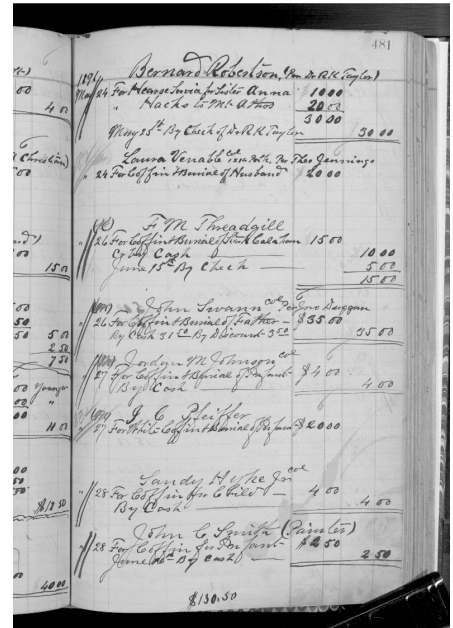 481
Bernard Robertson, (Per Dr R.K Taylor)
1896
May 24 For Hearse Service for Sister Anna 10 00
" Hacks to Mt Athos 20 00
30 00
May 25th By Check of Dr R K Taylor 30 00
Laura Venable col Per Theo Jennings
" 24 For Coffin & Burial of Husband 20 00
F. M. Threadgill
" 26 For Coffin & Burial of 15 00
Cr By Cash 10 00
June 15th By Check — 5 00
15 00
John Swann col Per Jno Duggan
" 26 For Coffin & Burial of Father — $35 00
By Cash 31 50 By Discount 3 50 35 00
Jordan M Johnson col
" 27 For Coffin & Burial of Infant $4 00
By Cash 4 00
J. C. Pfeiffer
" 27 For White Coffin & Burial of Infant $20 00
Sandy Jr col
" 28 For Coffin for Child — 4 00
By Cash 4 00
John C Smith (Painter)
" 28 For Coffin for Infant $2 50
June By Cash — 2 50
$130.50
00
4 00
Christian)
00
15 00
00
50
50 5 00
2 50
7 50
00 Younger
00 "
00 11 00
00
50
50
$12 50
00
40 00